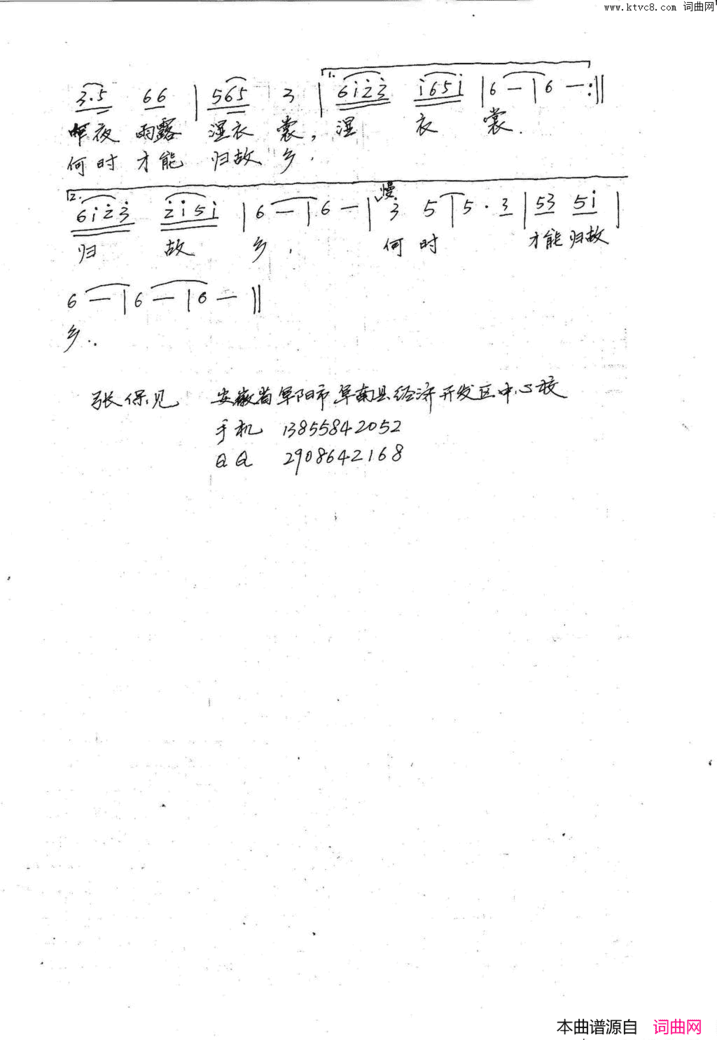 www.ktvc8.com 词曲网
3·5 66 | 565 3 | 1. 6i̇2̇3̇ i̇65i̇ | 6 — | 6 — :||
昨夜 雨露 湿衣 裳, 湿 衣 裳.
何时 才能 归故 乡.
2. 6i̇2̇3̇ 2̇i̇5i̇ | 6 — | 6 — | 慢 3̇ 5 | 5 · 3 | 53 5i̇ |
归 故 乡, 何 时 才能 归故
6 — | 6 — | 6 — ||
乡..
张保见 安徽省阜阳市阜南县经济开发区中心校
手机 13855842052
QQ 2908642168
本曲谱源自 词曲网